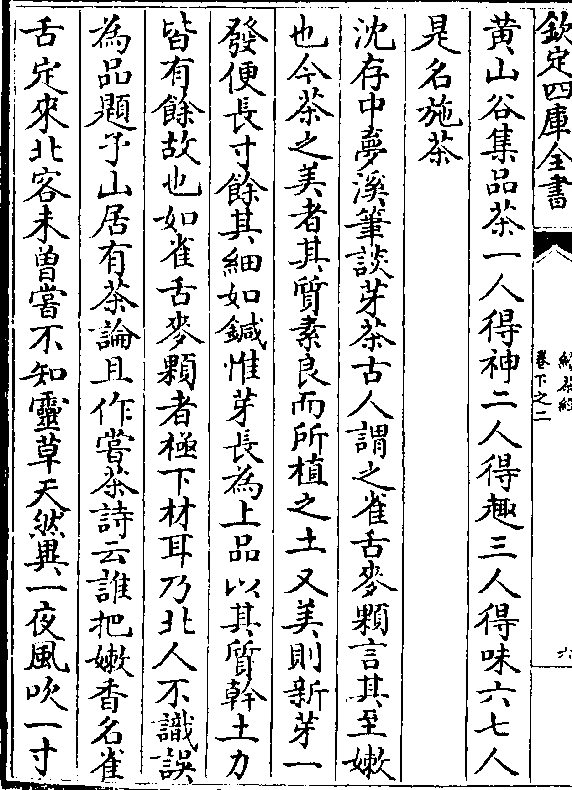 欽定四庫全書
續茶經
卷下之二
六
黃山谷集品茶一人得神二人得趣三人得味六七人
是名施茶
沈存中夢溪筆談芽茶古人謂之雀舌麥顆言其至嫩
也今茶之美者其質素良而所植之土又美則新芽一
發便長寸餘其細如鍼惟芽長為上品以其質幹土力
皆有餘故也如雀舌麥顆者極下材耳乃北人不識誤
為品題予山居有茶論且作嘗茶詩云誰把嫩香名雀
舌定來北客未曾嘗不知靈草天然異一夜風吹一寸